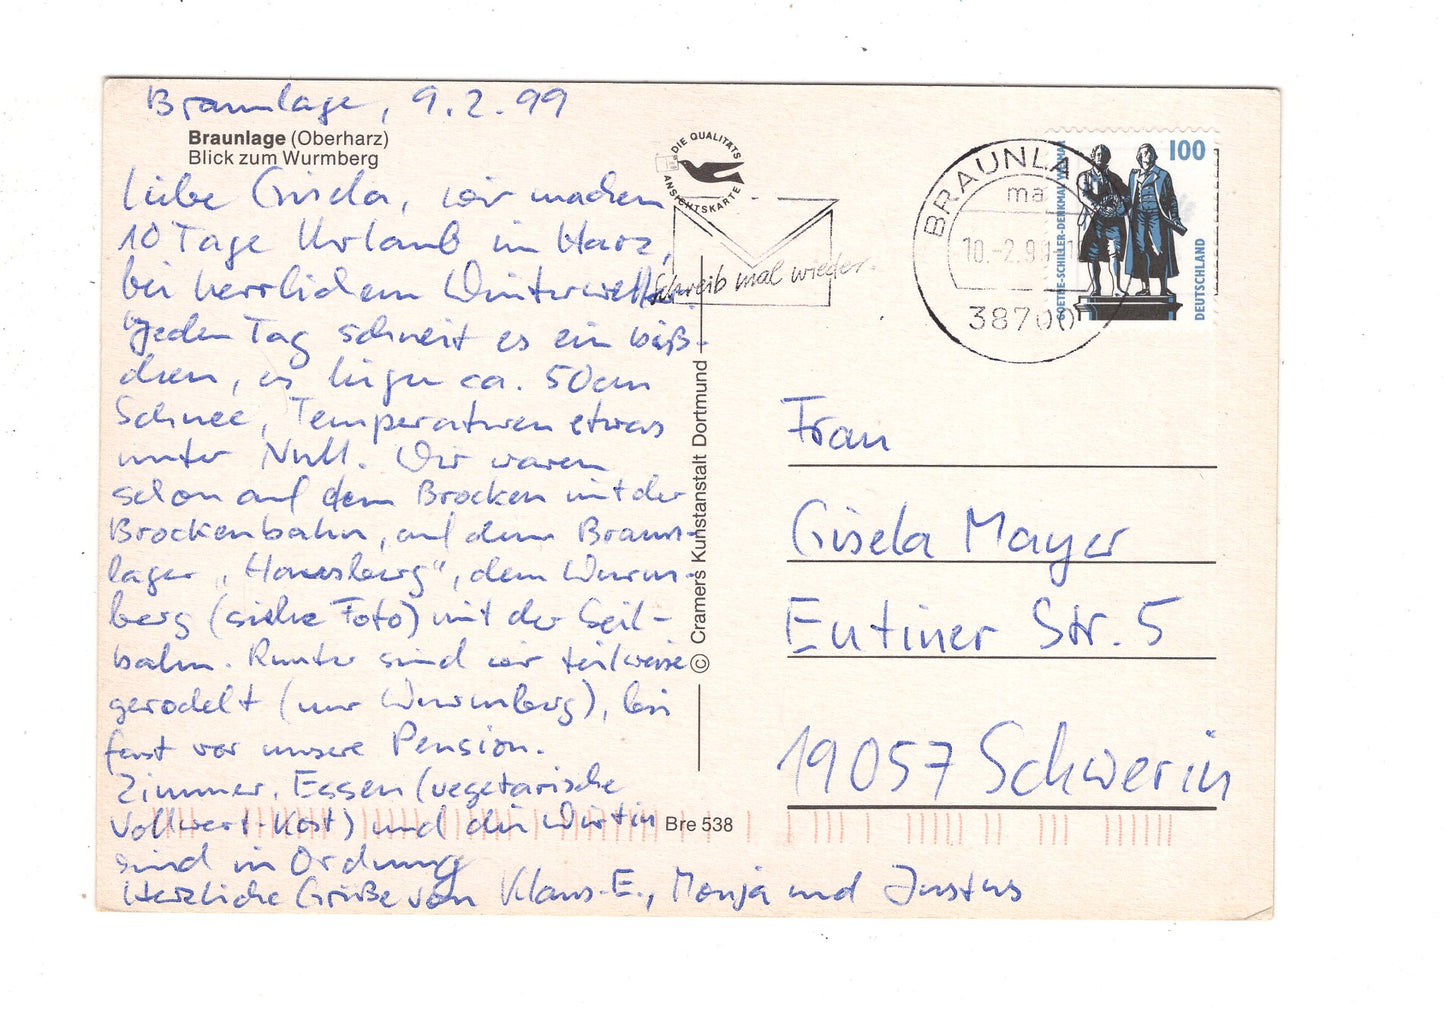 Braunlage, 9.2.99
Braunlage (Oberharz)
Blick zum Wurmberg
Liebe Gisela, wir machen
10 Tage Urlaub im Harz,
bei herrlichem Winterwetter.
Jeden Tag schneit es ein biß-
chen, es liegen ca. 50cm
Schnee, Temperaturen etwas
unter Null. Wir waren
schon auf dem Brocken mit der
Brockenbahn, auf dem Braun-
lager „Hausberg", dem Wurm-
berg (siehe Foto) mit der Seil-
bahn. Runter sind wir teilweise
gerodelt (nur Wurmberg), bis
fast vor unsere Pension.
Zimmer, Essen (vegetarische
Vollwert-Kost) und die Wirtin
sind in Ordnung
Herzliche Grüße von Klaus-E., Monja und Justus
DIE QUALITÄTS
ANSICHTSKARTE
Schreib mal wieder.
© Cramers Kunstanstalt Dortmund
Bre 538
BRAUNLA
ma
10.-2.99
38700
100
GOETHE-SCHILLER-DENKMAL WEIMAR
DEUTSCHLAND
Frau
Gisela Mayer
Eutiner Str. 5
19057 Schwerin